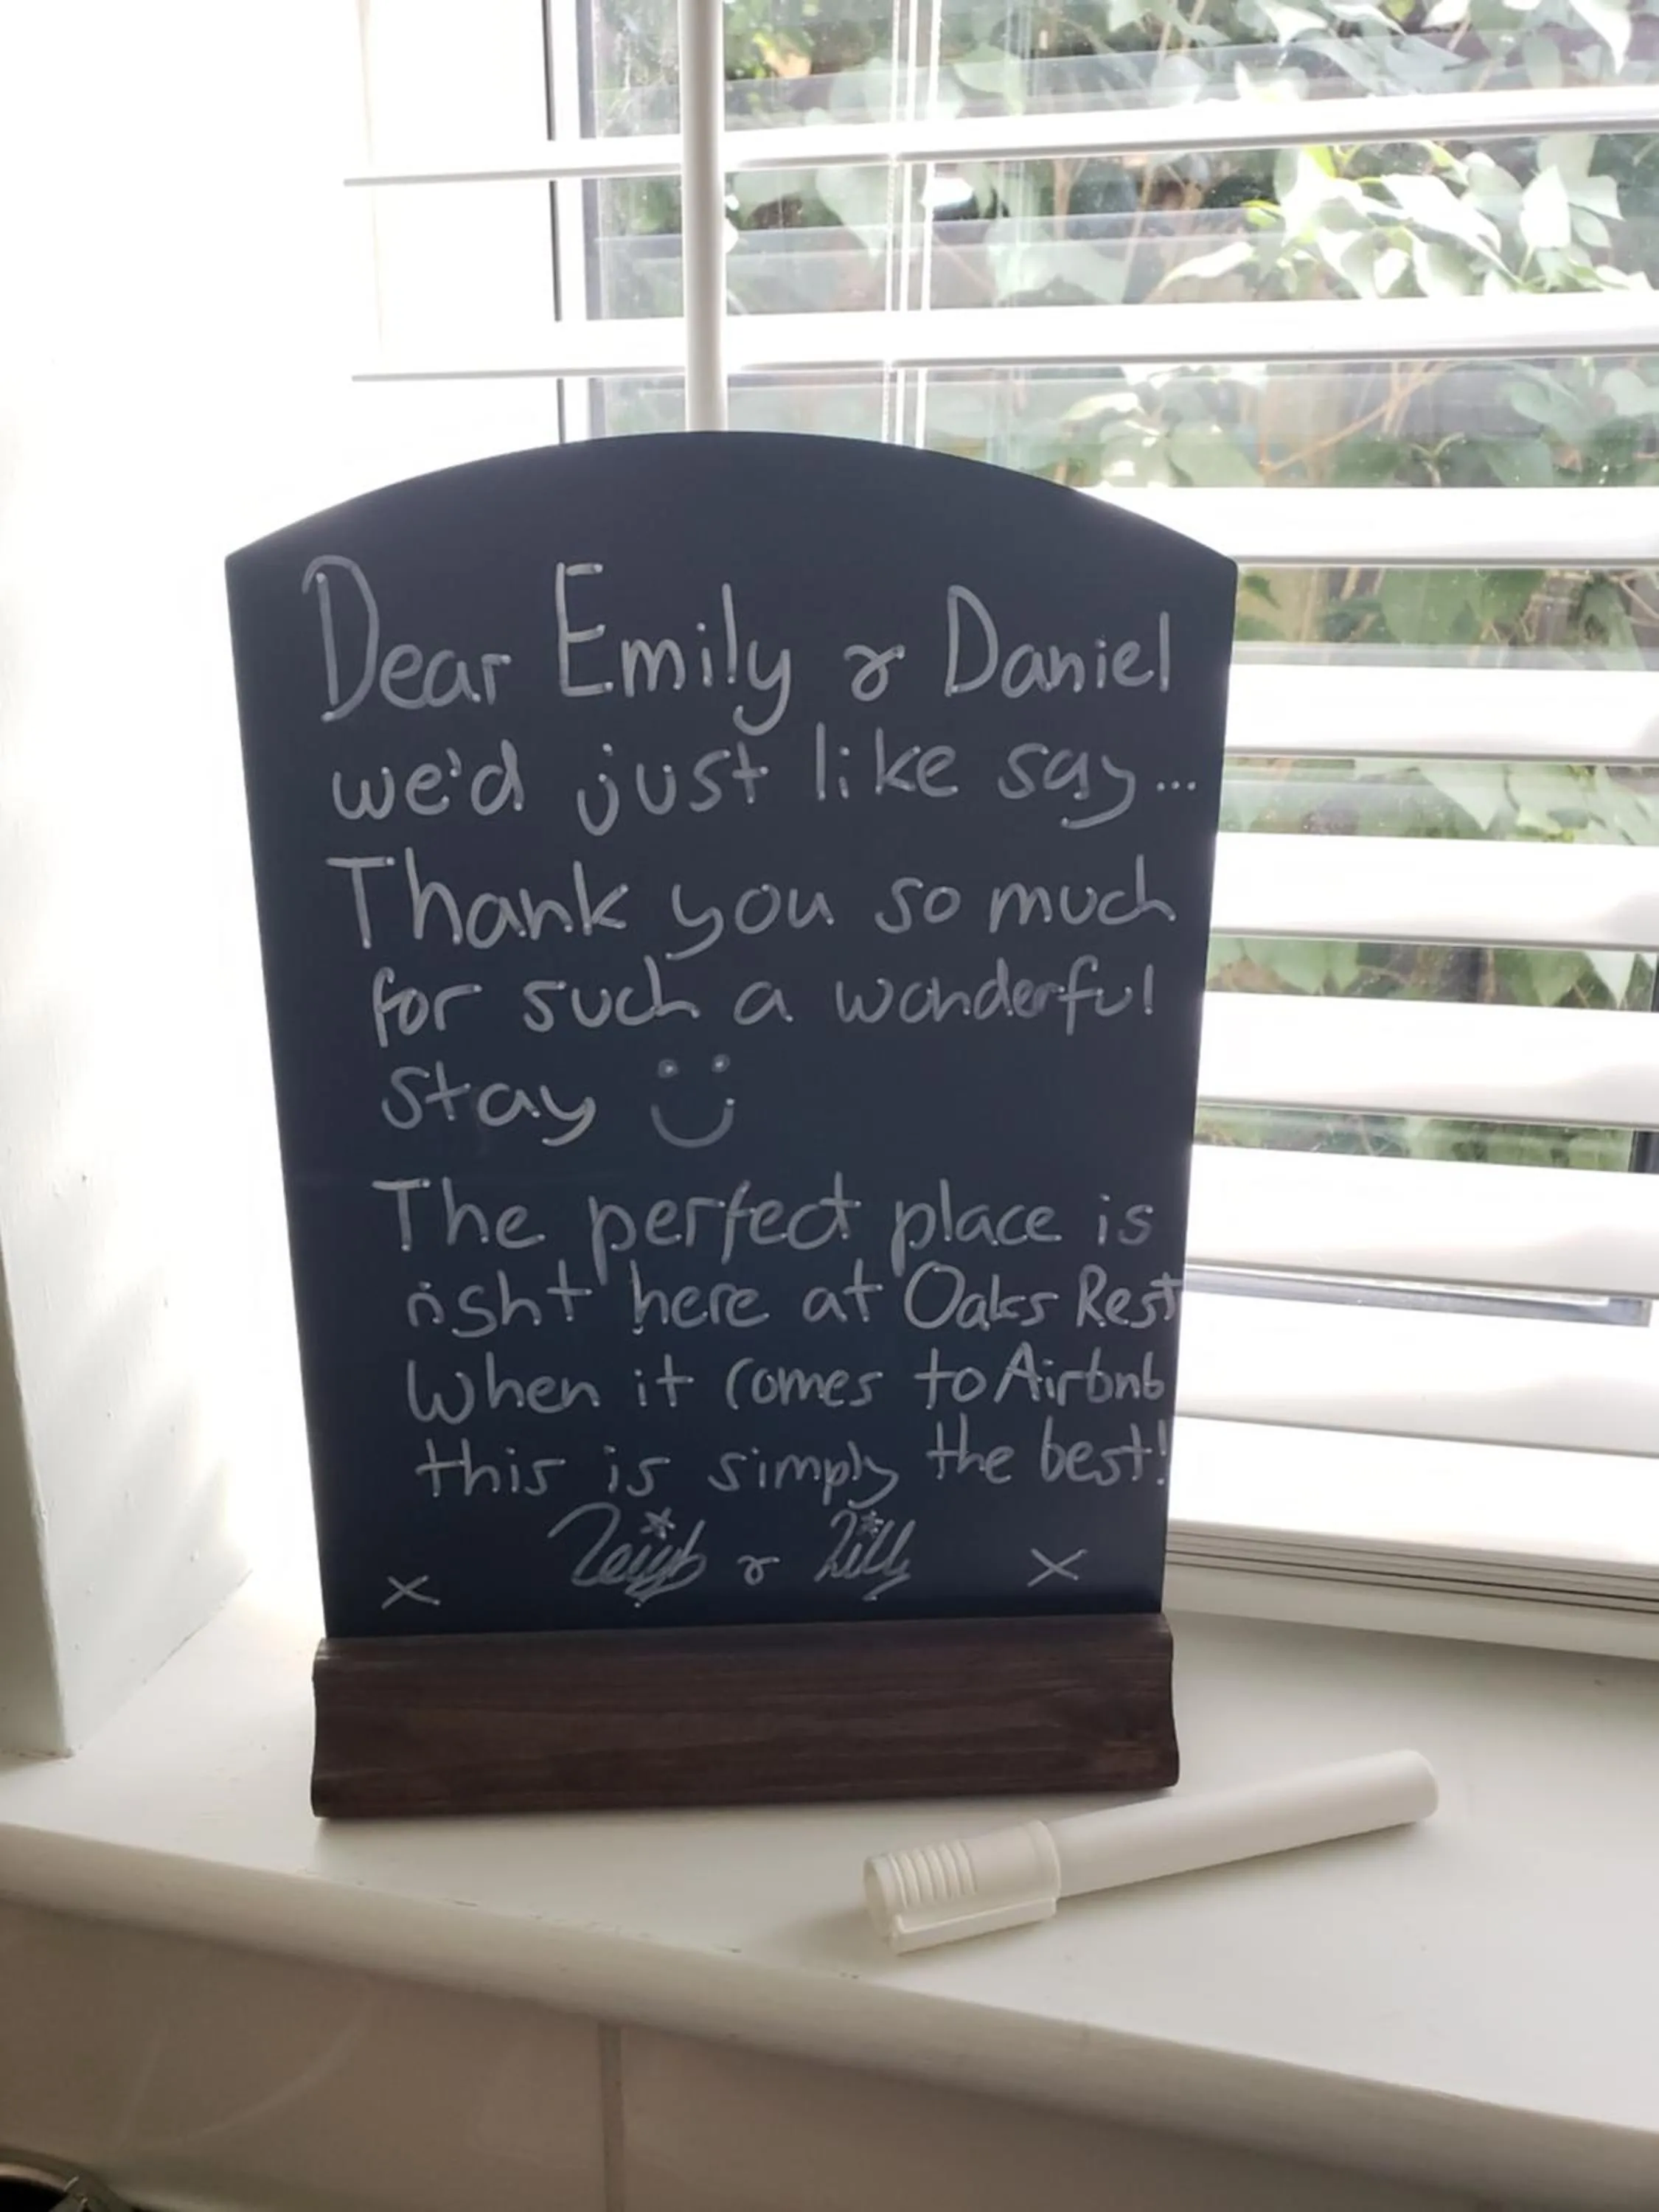 Dear Emily & Daniel
we'd just like say...
Thank you so much
for such a wonderful
stay
The perfect place is
right here at Oaks Rest
When it comes to Airbnb
this is simply the best!
x Leigh & Lilly x